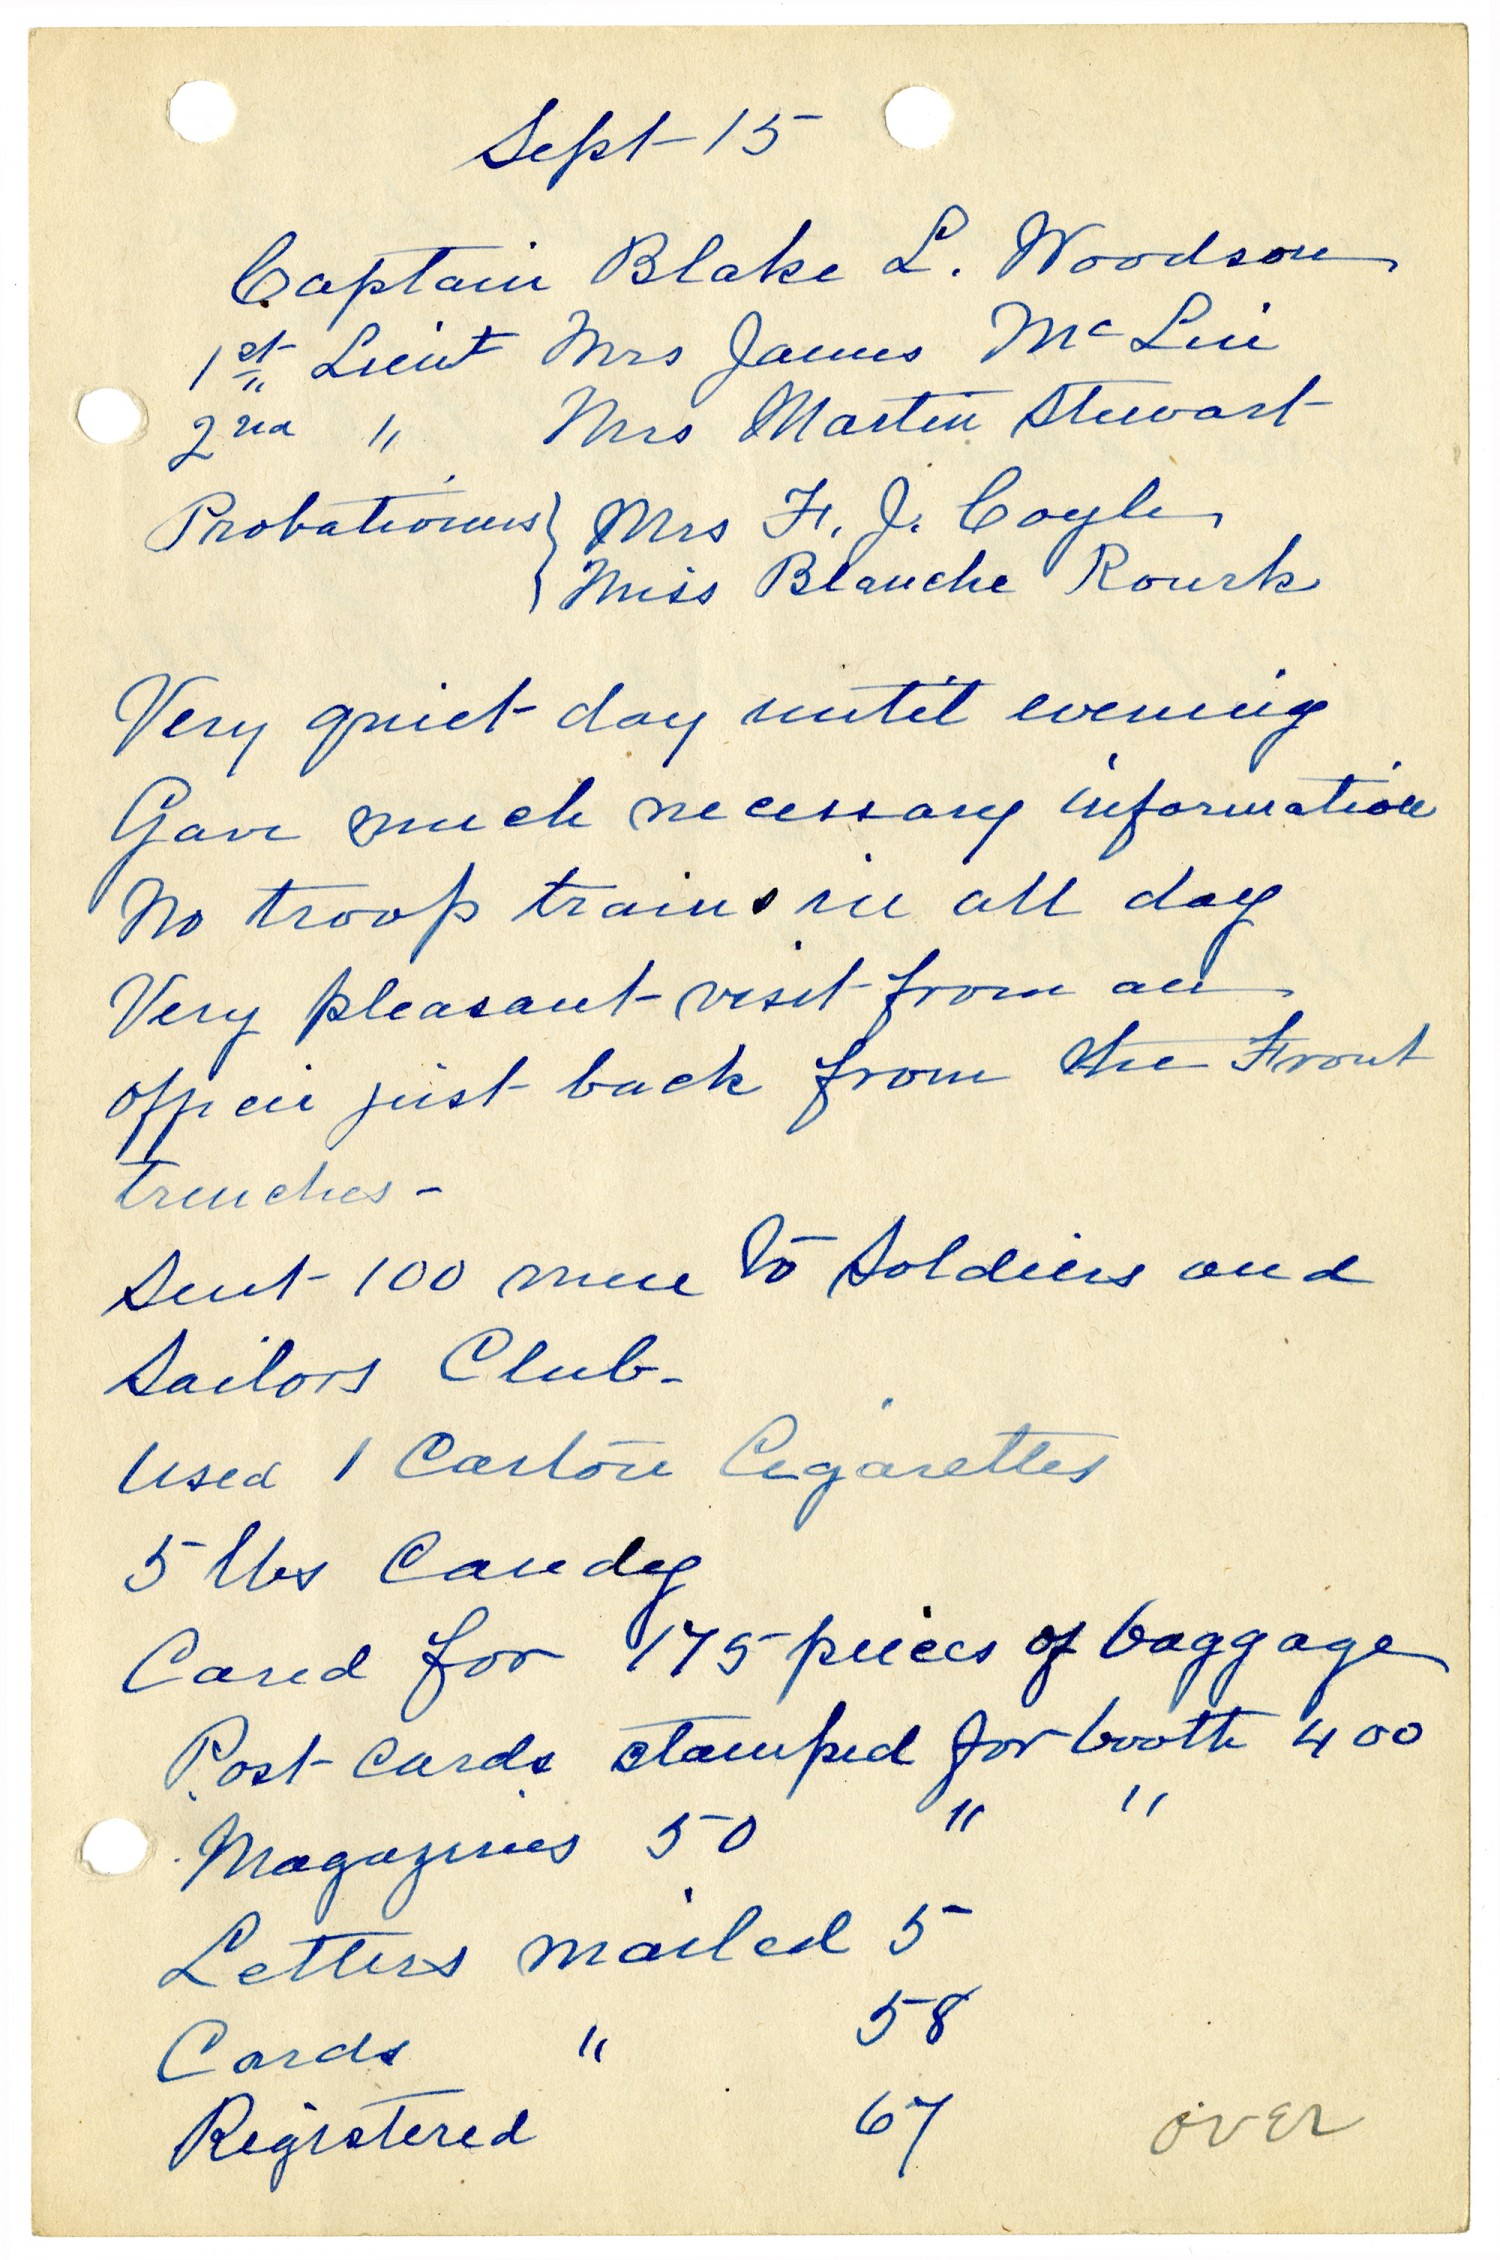 Sept 15
Captain Blake L. Woodson
1st Lieut Mrs James Mc Lin
2nd " Mrs Martin Stewart
Probationers } Mrs F. J. Coyle
Miss Blanche Rourk
Very quiet day until evening
Gave much necessary information
No troop trains in all day
Very pleasant visit from an
officer just back from the Front
trenches -
Sent 100 men to Soldiers and
Sailors Club -
Used 1 Carton Cigarettes
5 lbs Candy
Cared for 175 pieces of baggage
Post cards stamped for booth 400
Magazines 50 " "
Letters mailed 5
Cards " 58
Registered 67
over